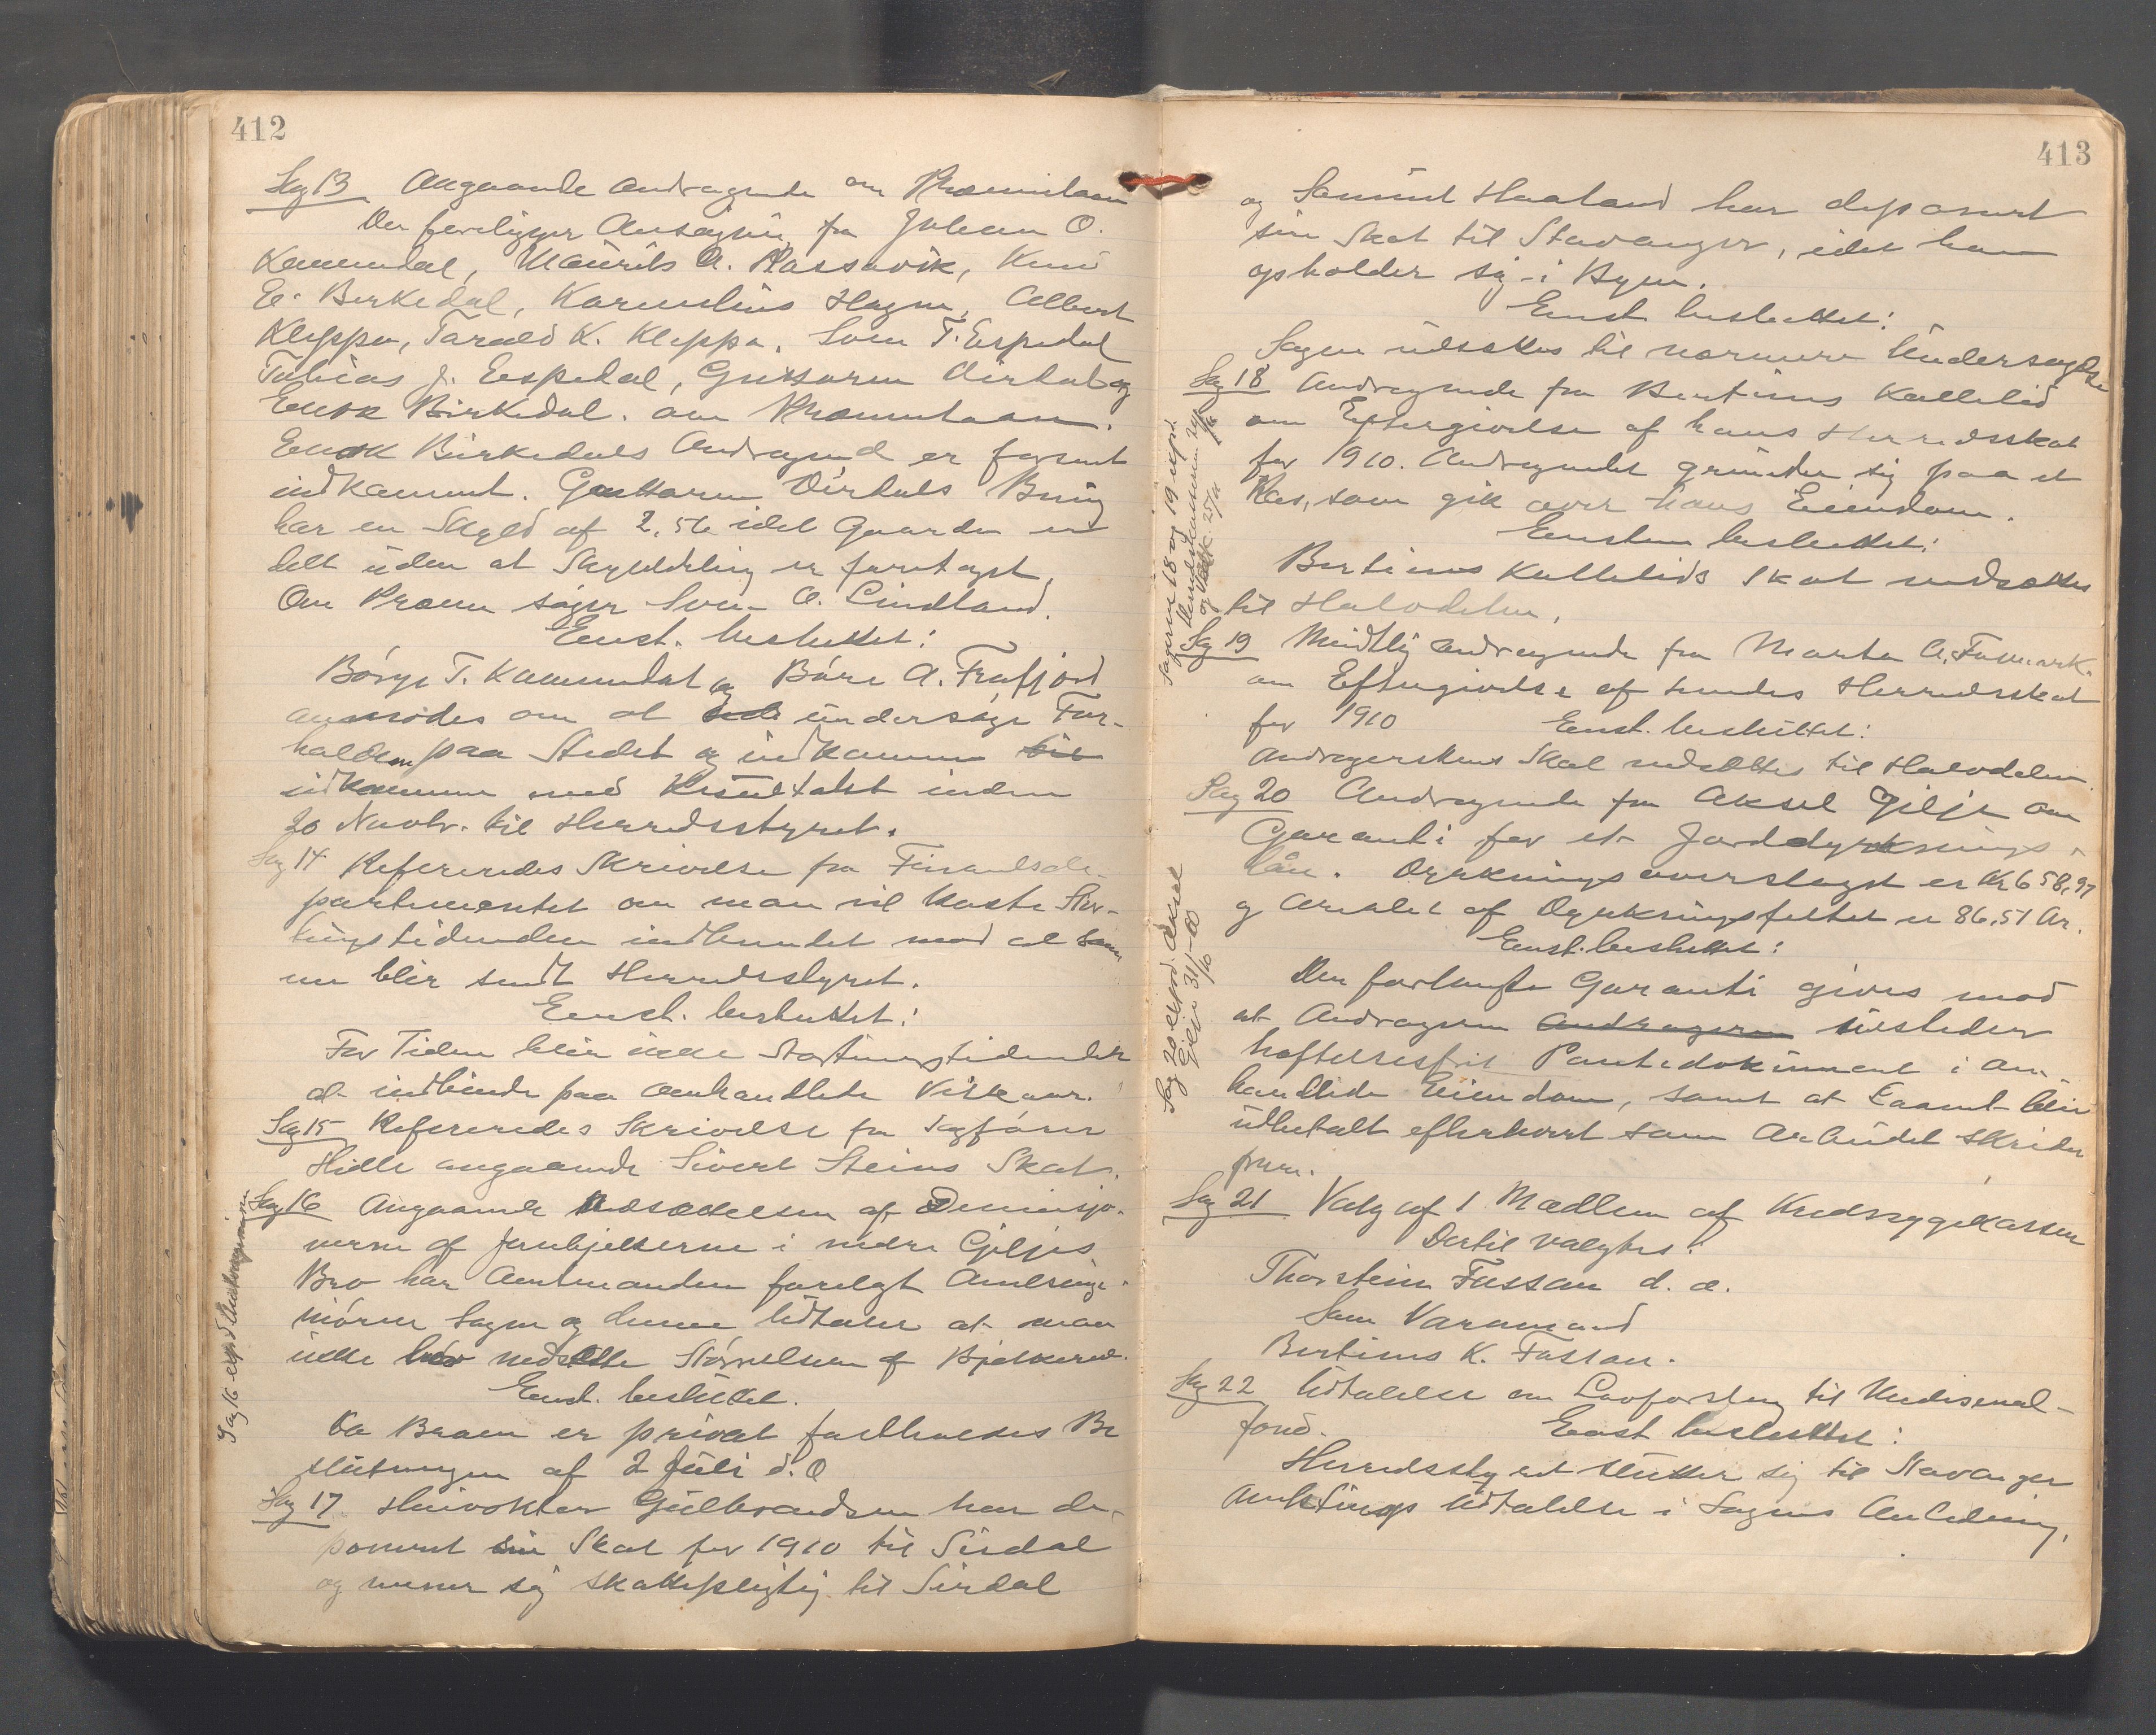 412
Sag 13 Angaaende Andragende om Præmielaan
Der foreligger Ansøgnin fra Johan O.
Kommedal, Maurits A. Røssevik, Knud
E. Birkedal, Karnelius Hagen, Albert
Kleppa, Tarald K. Kleppa, Sven T. Espedal
Tobias J. Eespedal, Guttorm Dirdal og
Enok Birkedal. om Præmielaan.
Enok Birkedals Andragend er forsent
indkommet. Guttorm Dirdals Brug
har en Skyld af 2,56 idet Gaarden er
delt uden at Skylddeling er foretaget,
Om Præm søger Sven O. Lindland.
Enst. besluttet:
Børge T. Kommedal og Båre A. Frafjord
anmodes om at undersøge For-
holdene paa Stedet og indkomme til
indkomme med Resultatet inden
20 Novbr. til Herredsstyret.
Sag 14 Refereredes Skrivelse fra Finantsde-
partementet om man vil koste Stor-
tingstidenden indbundet mod at samme
nu blir sendt Herredsstyret.
Enst. besluttet:
For Tiden blir ikke Stortingstidende
at indbinde paa omhandlede Vilkaar.
Sag 15 Refereredes Skrivelse fra Sagfører
Hidle angaaende Sivert Steins Skat.
Sag 16 Angaaende Nedsættelsen af Deminsjo-
nerne af Jernbjelkerne i nedre Giljes
Bro har Amtmanden forelagt Amtsinge-
niøren Sagen og denne Udtaler at man
ikke bør nedsætte Størrelsen af Bjelkerne.
Enst. besluttet.
Da Broen er privat fastholdes Be
slutningen af 2 Juli d. A
Sag 17. Huivokter Gulbrandsen har de-
poneret sin Skat for 1910 til Sirdal
og mener sig skattepligtig til Sirdal
Sag 16 exp. d Andrageren
413
og Samuel Haaland har deponeret
sin Skat til Stavanger, idet han
opholder sig i Byen.
Enst besluttet:
Sagen udsættes til nærmere Undersøgelse
Sag 18 Andragende fra Bertinus Kallelid
om Eftergivelse af hans Herredsskat
for 1910. Andragendet grunder sig paa et
Ras, som gik over hans Eiendom.
Enstem besluttet:
Bertinus Kallelids Skat nedsættes
til Halvdelen.
Sag 19 Mundtlig Andragende fra Marta A. Fæmark.
om Eftergivelse af hendes Herredsskat
for 1910 Enst. besluttet:
Andragerskens Skat nedsættes til Halvdelen
Sag 20 Andragende fra Aksel Gilje om
Garanti for et Jorddyrknings-
lån. Dyrkningsoverslaget er Kr 658,97
og Arealet af Dyrkningsfeltet er 86,51 Ar.
Enst. besluttet:
Den forlangte Garanti gives mod
at Andrageren Andrageren udsteder
heftelsesfrit Pantedokument i om-
handlede Eiendom, samt at Laanet blir
udbetalt efterhvert som Arbeidet skrider
frem.
Sag 21 Valg af 1 Medlem af Kredssygekassen
Dertil valgtes:
Thorstein Fossan d. æ.
Som Varamand
Bertinus K. Fossan.
Sag 22 Udtalelse om Lovforslag til Medisinal-
fond. Enst besluttet:
Herredsstyret slutter sig til Stavanger
Amtstings Udtalelse i Sagens Anledning.
Sagerne 18 og 19 exped.
Sag 20 exped. Aksel
Gilje 31/10